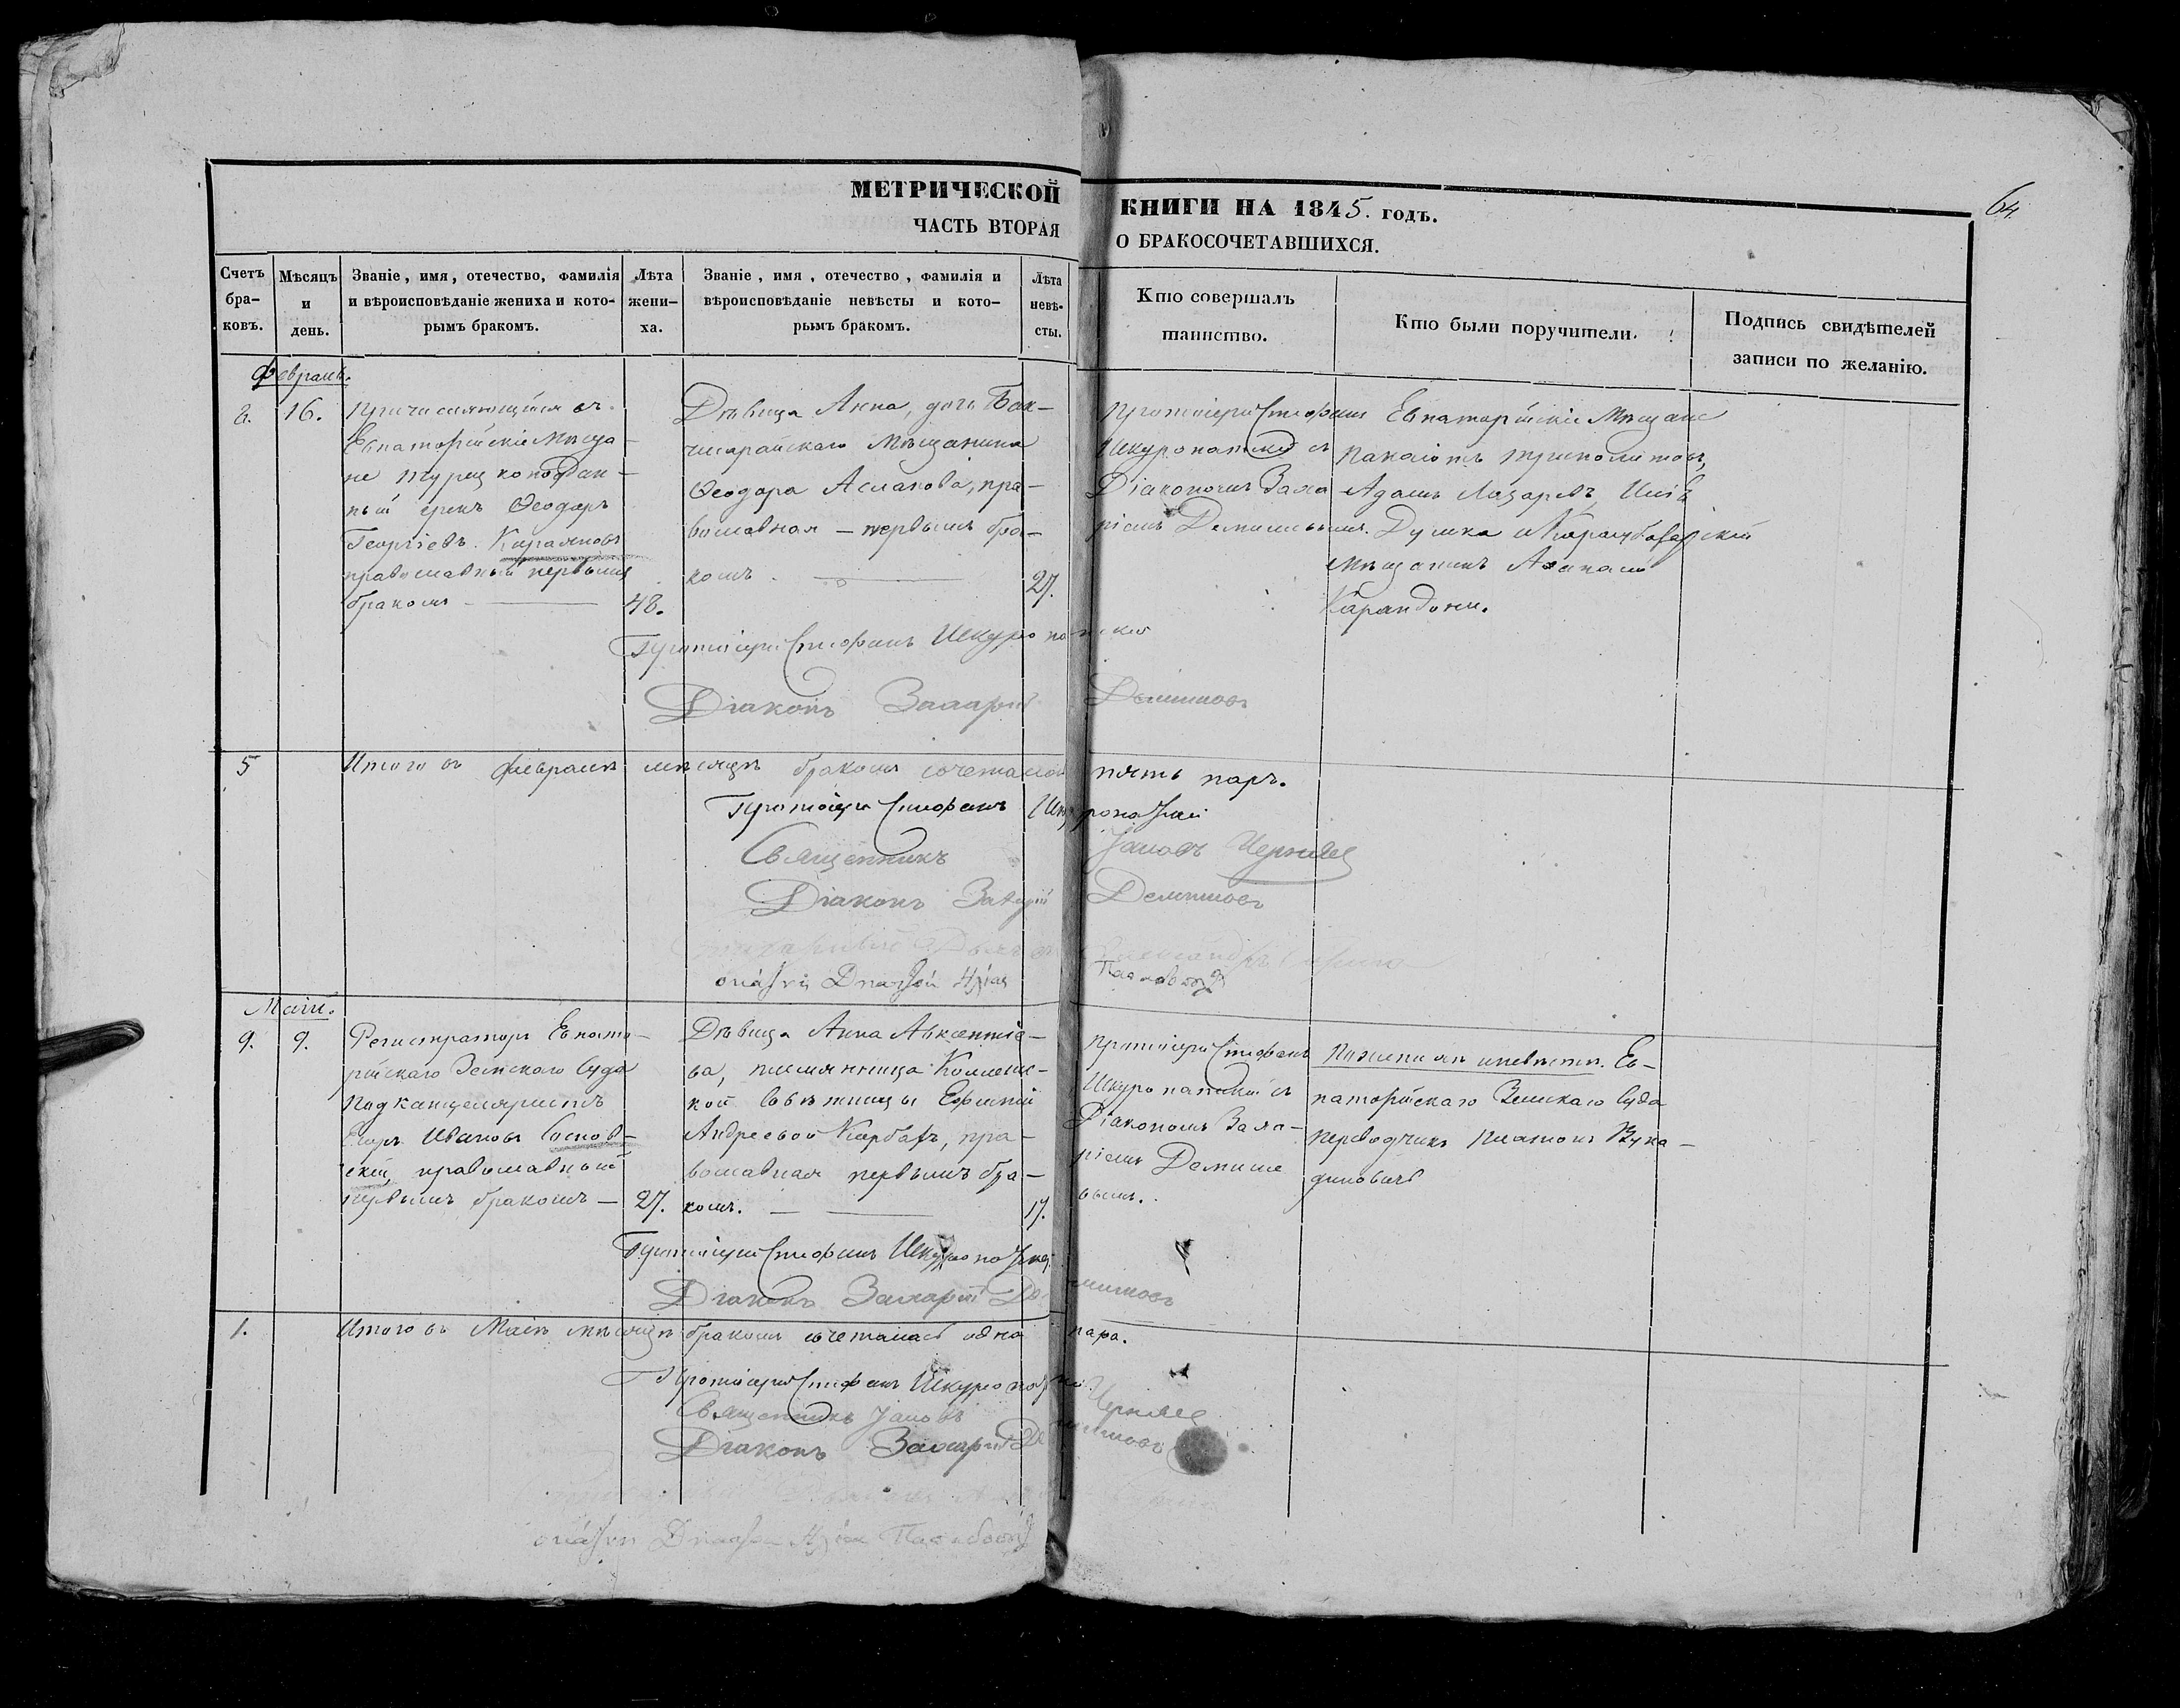 МЕТРИЧЕСКОЙ КНИГИ НА 1845. годъ.
ЧАСТЬ ВТОРАЯ О БРАКОСОЧЕТАВШИХСЯ.
64
Счетъ бра-ковъ.
Мѣсяцъ и день.
Званіе, имя, отечество, фамилія
и вѣроисповѣданіе жениха и кото-
рымъ бракомъ.
Лѣта жени-ха.
Званіе, имя, отечество, фамилія и
вѣроисповѣданіе невѣсты и кото-
рымъ бракомъ.
Лѣта невѣ-сты.
Кто совершалъ
таинство.
Кто были поручители.
Подпись свидѣтелей
записи по желанію.
Февраль.
8.
16.
Причисляющійся въ
Евпаторійскіе Мѣща-
не Турецкоподдан-
ный грекъ Ѳеодоръ
Георгіевъ
православный первымъ
бракомъ
48.
Дѣвица Анна, дочь Бах-
чисарайскаго Мѣщанина
Ѳеодора Асланова, пра-
вославная – первымъ бра-
комъ.
27.
Протоіерей Стефанъ
Шкуропатскій съ
Діакономъ Заха-
ріемъ
Евпаторійскіе Мѣщане
Адамъ Лазаревъ,
Душка и Карасубазарскій
Мѣщанинъ
Протоіерей Стефанъ Шкуропатскій
Діаконъ Захарій
5
Итого въ Февралѣ мѣсяцѣ бракомъ сочеталось пять паръ.
Протоіерей Стефанъ Шкуропатскій
Священникъ Іаковъ Чернявс
Діаконъ Захарій
Май.
9.
9.
Регистраторъ Евпато-
рійскаго Земскаго Суда
Подканцеляристъ
Ивановъ Соснов-
скій, православный
первымъ бракомъ –
27.
Дѣвица Анна Авксентіе-
ва, племянница Коллежс-
кой Совѣтницы Ефиміи
Андреевой пра-
вославная первымъ бра-
комъ.
17.
Протоіерей Стефанъ
Шкуропатскій съ
Діакономъ Заха-
ріемъ
вымъ.
По женихѣ и невѣстѣ. Ев-
паторійскаго Земскаго Суда
переводчикъ Платонъ Вука-
диновичъ
Протоіерей Стефанъ Шкуропатскій
Діаконъ Захарій
1.
Итого въ Маѣ мѣсяцѣ бракомъ сочеталась одна пара.
Протоіерей Стефанъ Шкуропатскій
Священникъ Іаковъ Чернявс
Діаконъ Захарій